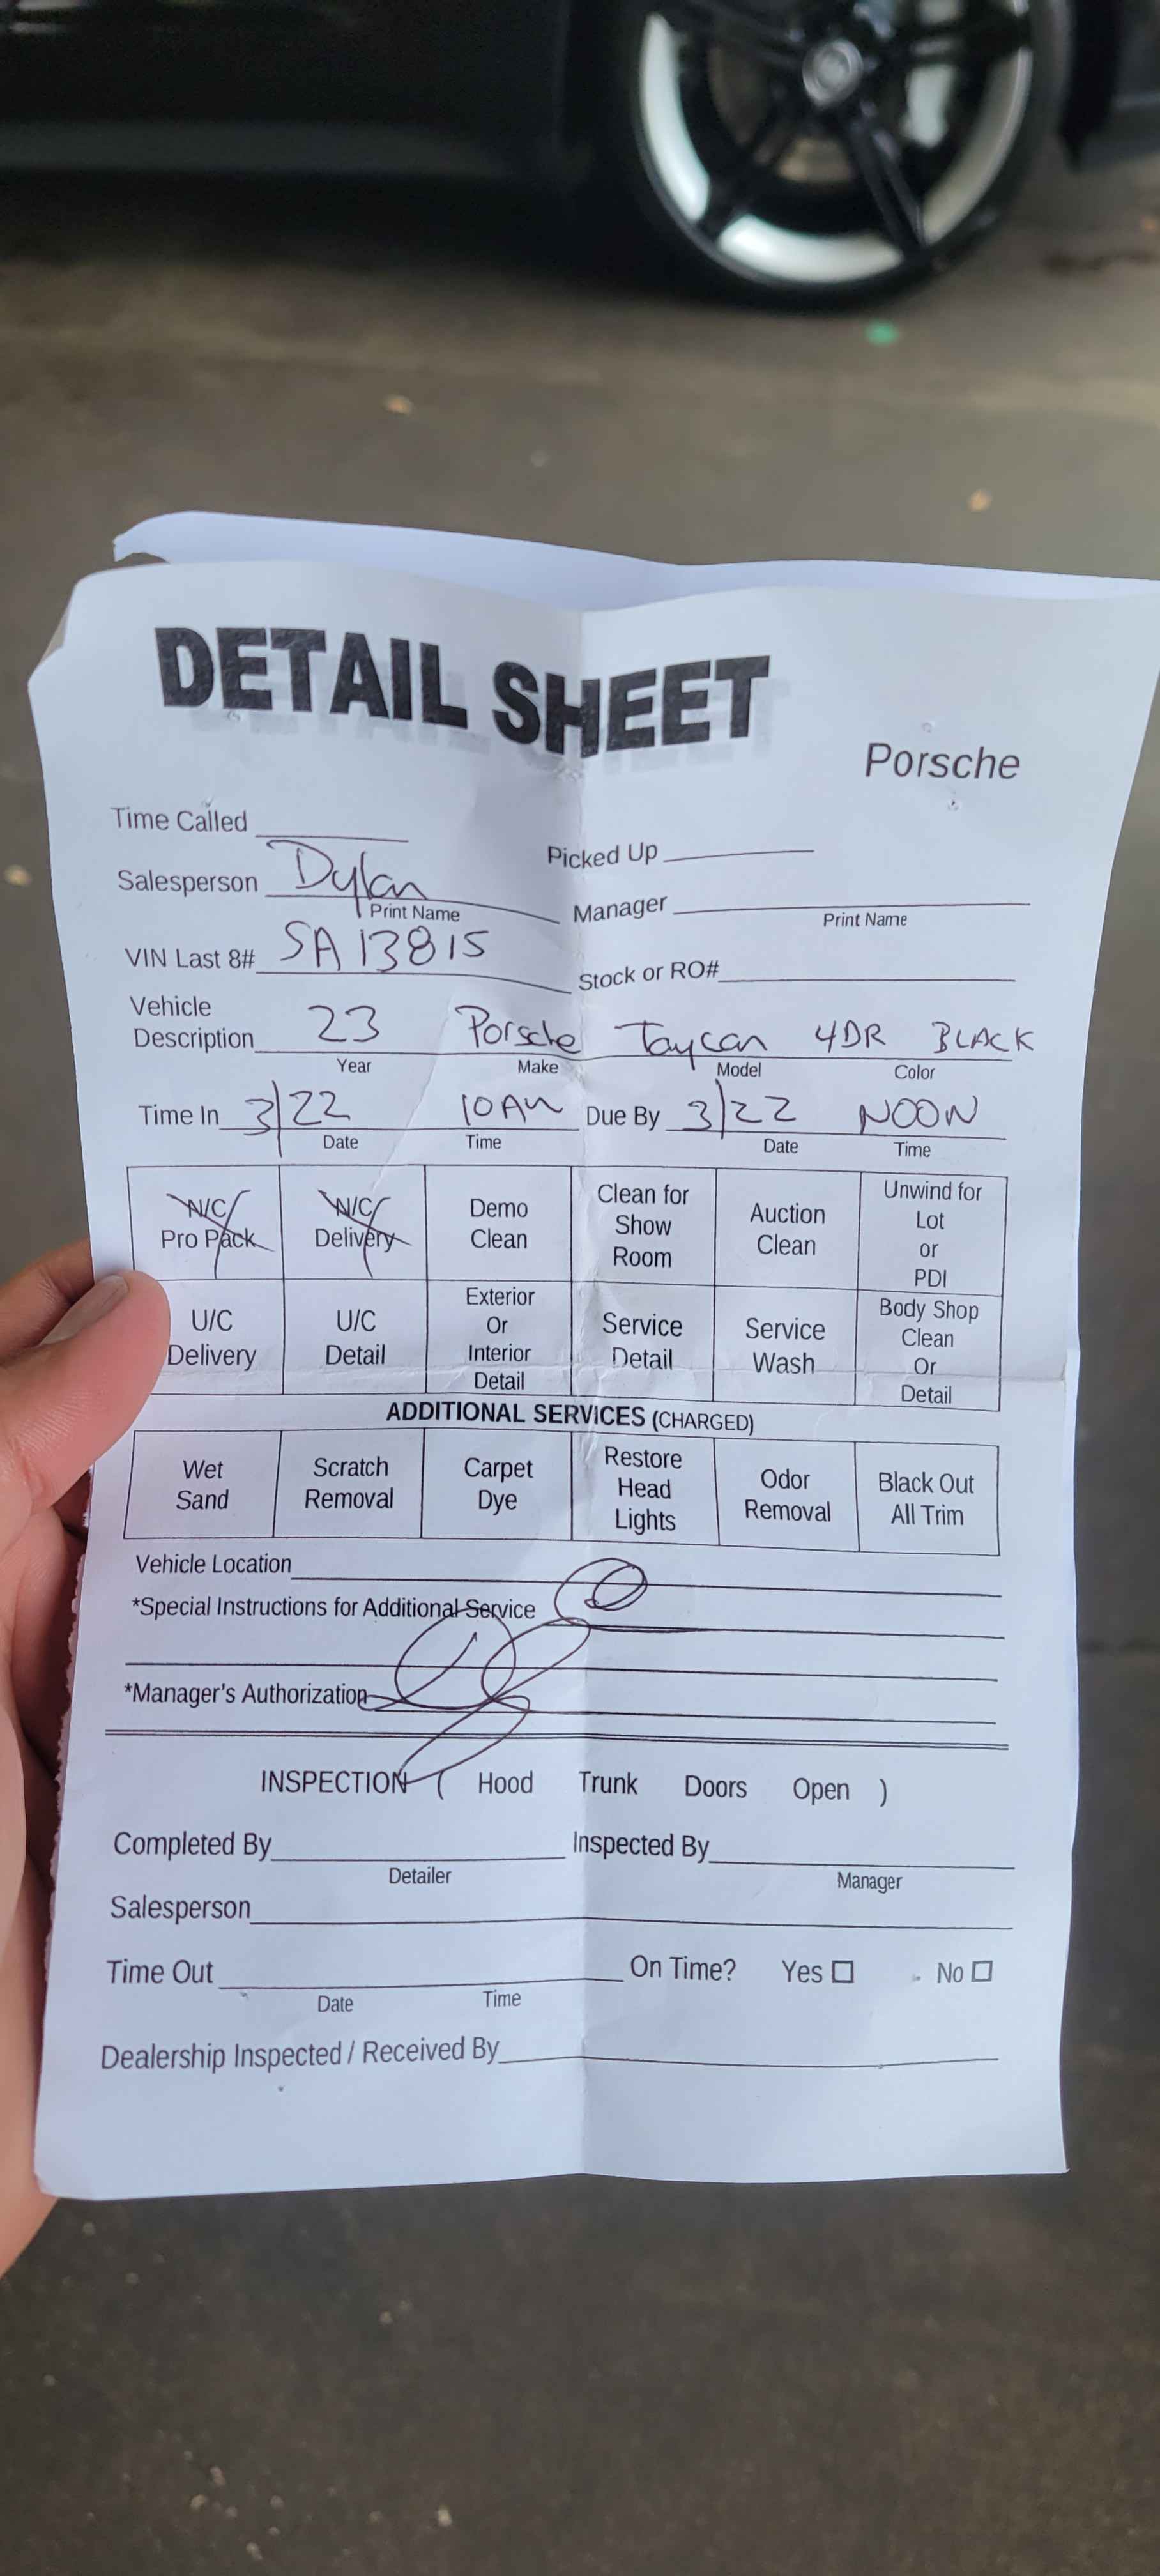 DETAIL SHEET
Porsche
Time Called
Picked Up
Salesperson Dylan
Print Name
Manager
Print Name
VIN Last 8# SA13815
Stock or RO#
Vehicle
Description 23 Porsche Taycan 4DR BLACK
Year Make Model Color
Time In 3/22 10AM Due By 3/22 NOON
Date Time Date Time
N/C
Pro Pack
N/C
Delivery
Demo
Clean
Clean for
Show
Room
Auction
Clean
Unwind for
Lot
or
PDI
U/C
Delivery
U/C
Detail
Exterior
Or
Interior
Detail
Service
Detail
Service
Wash
Body Shop
Clean
Or
Detail
ADDITIONAL SERVICES (CHARGED)
Wet
Sand
Scratch
Removal
Carpet
Dye
Restore
Head
Lights
Odor
Removal
Black Out
All Trim
Vehicle Location
*Special Instructions for Additional Service
*Manager's Authorization
INSPECTION ( Hood Trunk Doors Open )
Completed By
Detailer
Inspected By
Manager
Salesperson
Time Out
Date Time
On Time? Yes No
Dealership Inspected / Received By